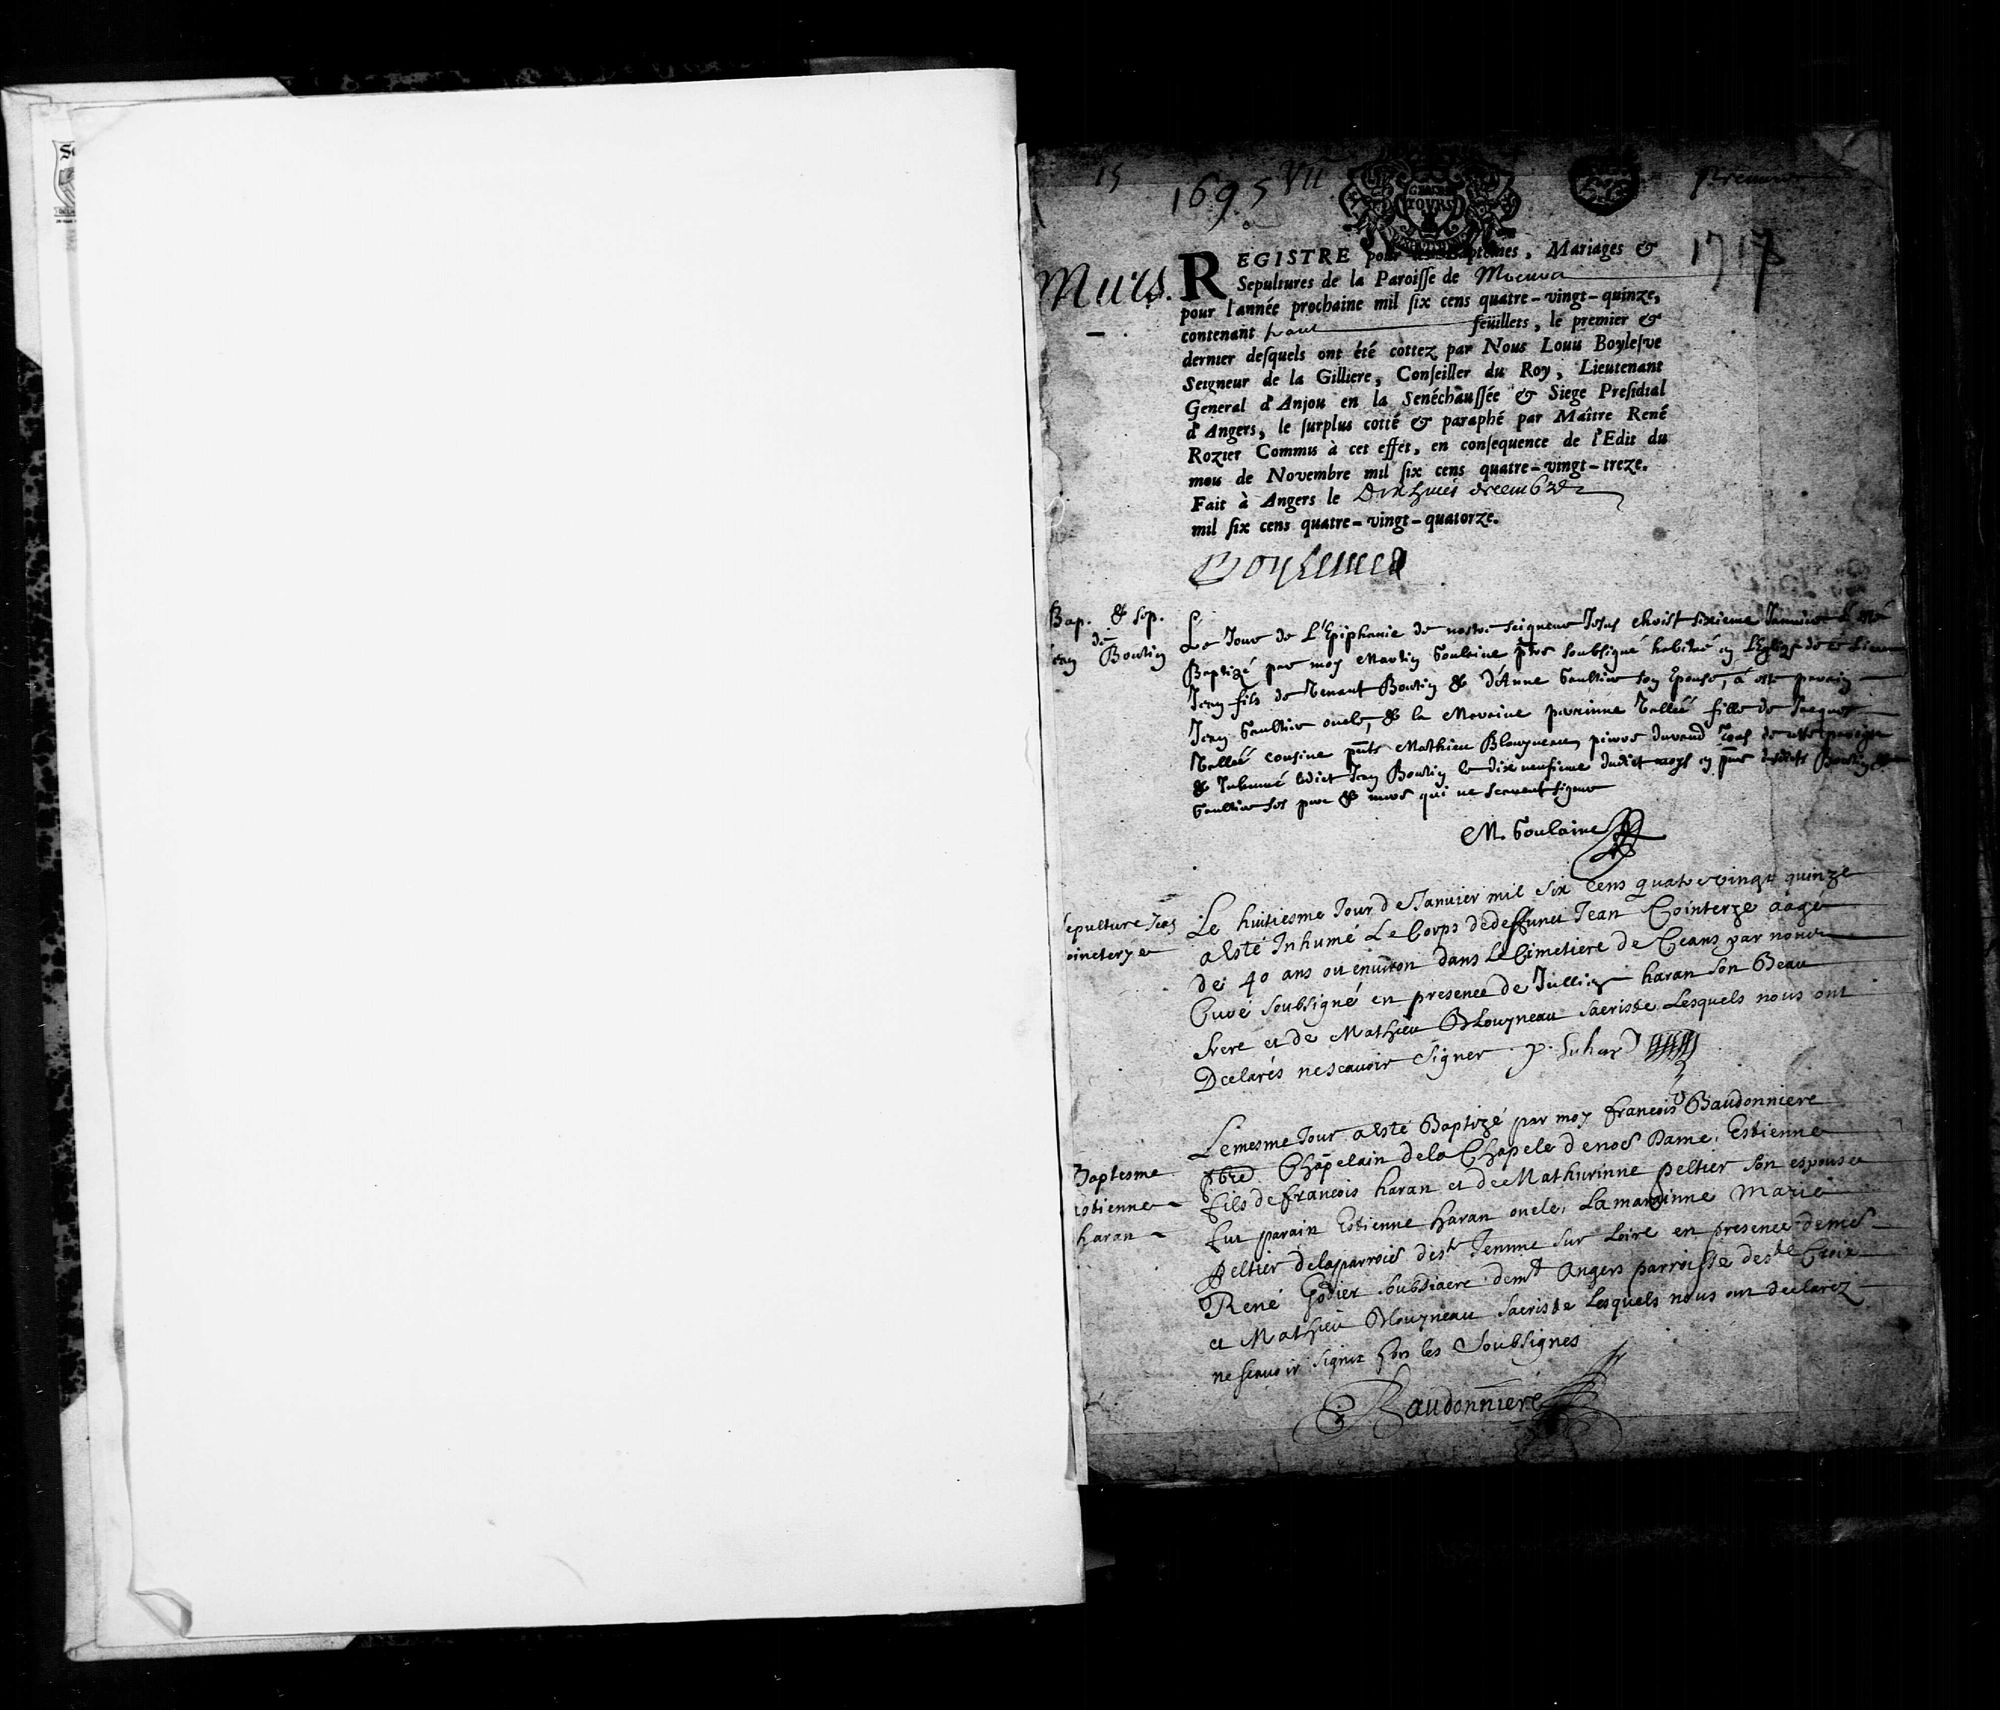 15
1695 VII
GENER
TOVRS
premier
1717
Murs.
REGISTRE pour les Baptêmes, Mariages &
Sepultures de la Paroisse de Meurs
pour l'année prochaine mil six cens quatre-vingt-quinze,
contenant feüillets, le premier &
dernier desquels ont été cottez par Nous Louis Boylesve
Seigneur de la Gilliere, Conseiller du Roy, Lieutenant
General d'Anjou en la Senéchaussée & Siege Presidial
d'Angers, le surplus cotté & paraphé par Maître René
Rozier Commis à cet effet, en consequence de l'Edit du
mois de Novembre mil six cens quatre-vingt-treze.
Fait à Angers le Dixhuict decembre
mil six cens quatre-vingt-quatorze.
Boylesve
Bap. & sep.
de
Jean Boutin
Le Jour de L'Epiphanie de nostre seigneur Jesus christ sixieme Janvier a esté
Baptizé par moy Martin Goulaine pbre soubsigné habitué en L'Eglise de ce Lieu
Jean fils de Renaut Boutin & d'Anne Gaultier son Epouse, a esté parain
Jean Gaultier oncle, & la Maraine perrinne Vallée fille de Jacques
Vallée cousine pnts Mathieu Blouyneau pierre durand tous de cette paroisse
& Inhumé ledict Jean Boutin le dix neufieme dudict moys en pnce desdicts Boutin &
Gaultier ses pere & mere qui ne scavent signer
M. Goulaine
sepulture Jean
Cointerye
Le huitiesme Jour de Janvier mil six cens quatrevingt quinze
a esté Inhumé Le Corps de deffunct Jean Cointerye aagé
de 40 ans ou environ dans Le Cimetiere de Ceans par nous
Curé soubsigné en presence de Jullien haran son Beau
frere et de Mathieu Blouyneau sacriste Lesquels nous ont
Declarés ne scavoir signer. P. Suhard
Baptesme
Estienne
haran
Le mesme Jour a esté Baptizé par moy francois Baudonniere
pbre Chapelain de la Chapele de nore Dame, Estienne
fils de francois haran et de Mathurinne peltier son espouse
fut parain Estienne haran oncle, La marainne Marie
peltier de la parroice de st Jemme sur Loire en presence de me
René Godier soubdiacre demt Angers parroisse de ste Croix
et Mathieu Blouyneau sacriste Lesquels nous ont declarez
ne scavoir signer hors les Soubsignes
Baudonniere